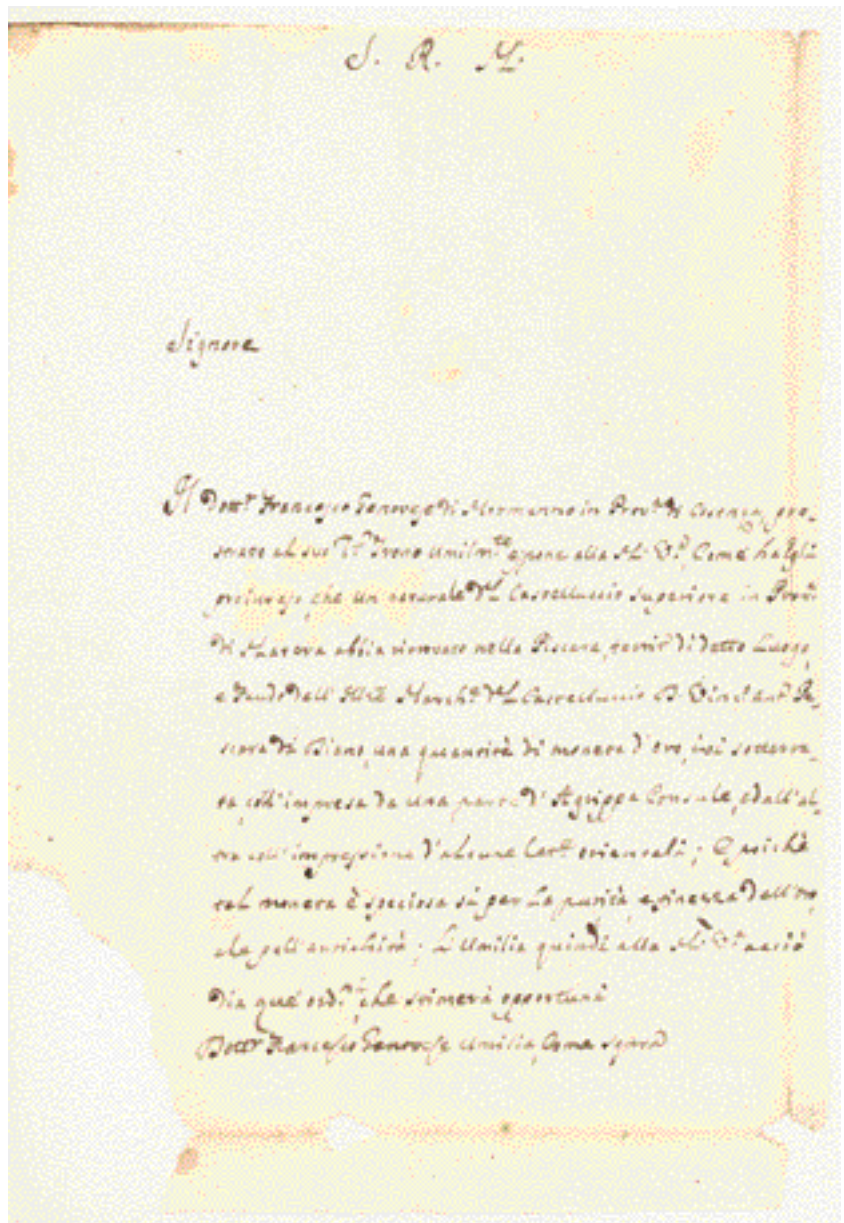 S. R. M.
Signore
Il Dott.r Francesco Genovese di Mormanno in Prov.a di Cosenza, pro-
strato al suo Trono umilm.te espone alla M. V., Come ha egli
preinteso, che un naturale del Castelluccio Superiore in Prov.a
di Matera abbia rinvenuto nella Piscara, di detto Luogo,
e Feudo dell' Ill.e March.e del Castelluccio D. Pe-
scara di Diano, una quantità di moneta d'oro, ivi sotterra-
ta, coll'impresa da una parte d'Agrippa Console, e dall'al-
tra coll'impressione d'alcune Lett.e orientali; E poichè
tal moneta è speciosa sì per La purità, e finezza dell'oro,
che pell' L'Umilia quindi alla M. V. acciò
dia que' ord.i, che stimerà opportuni
Dott.r Francesco Genovese umilia, Come sopra